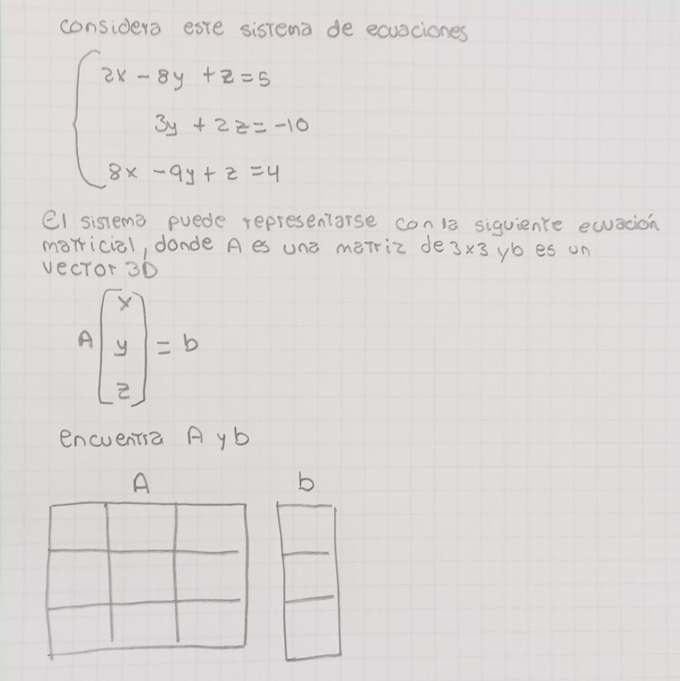 considera este sistema de ecuaciones
2x - 8y + z = 5
3y + 2z = -10
8x - 9y + z = 4
El sistema puede representarse con la siguiente ecuación
matricial, donde A es una matriz de 3x3 y b es un
vector 3D
A [x y z] = b
encuentra A y b
A b